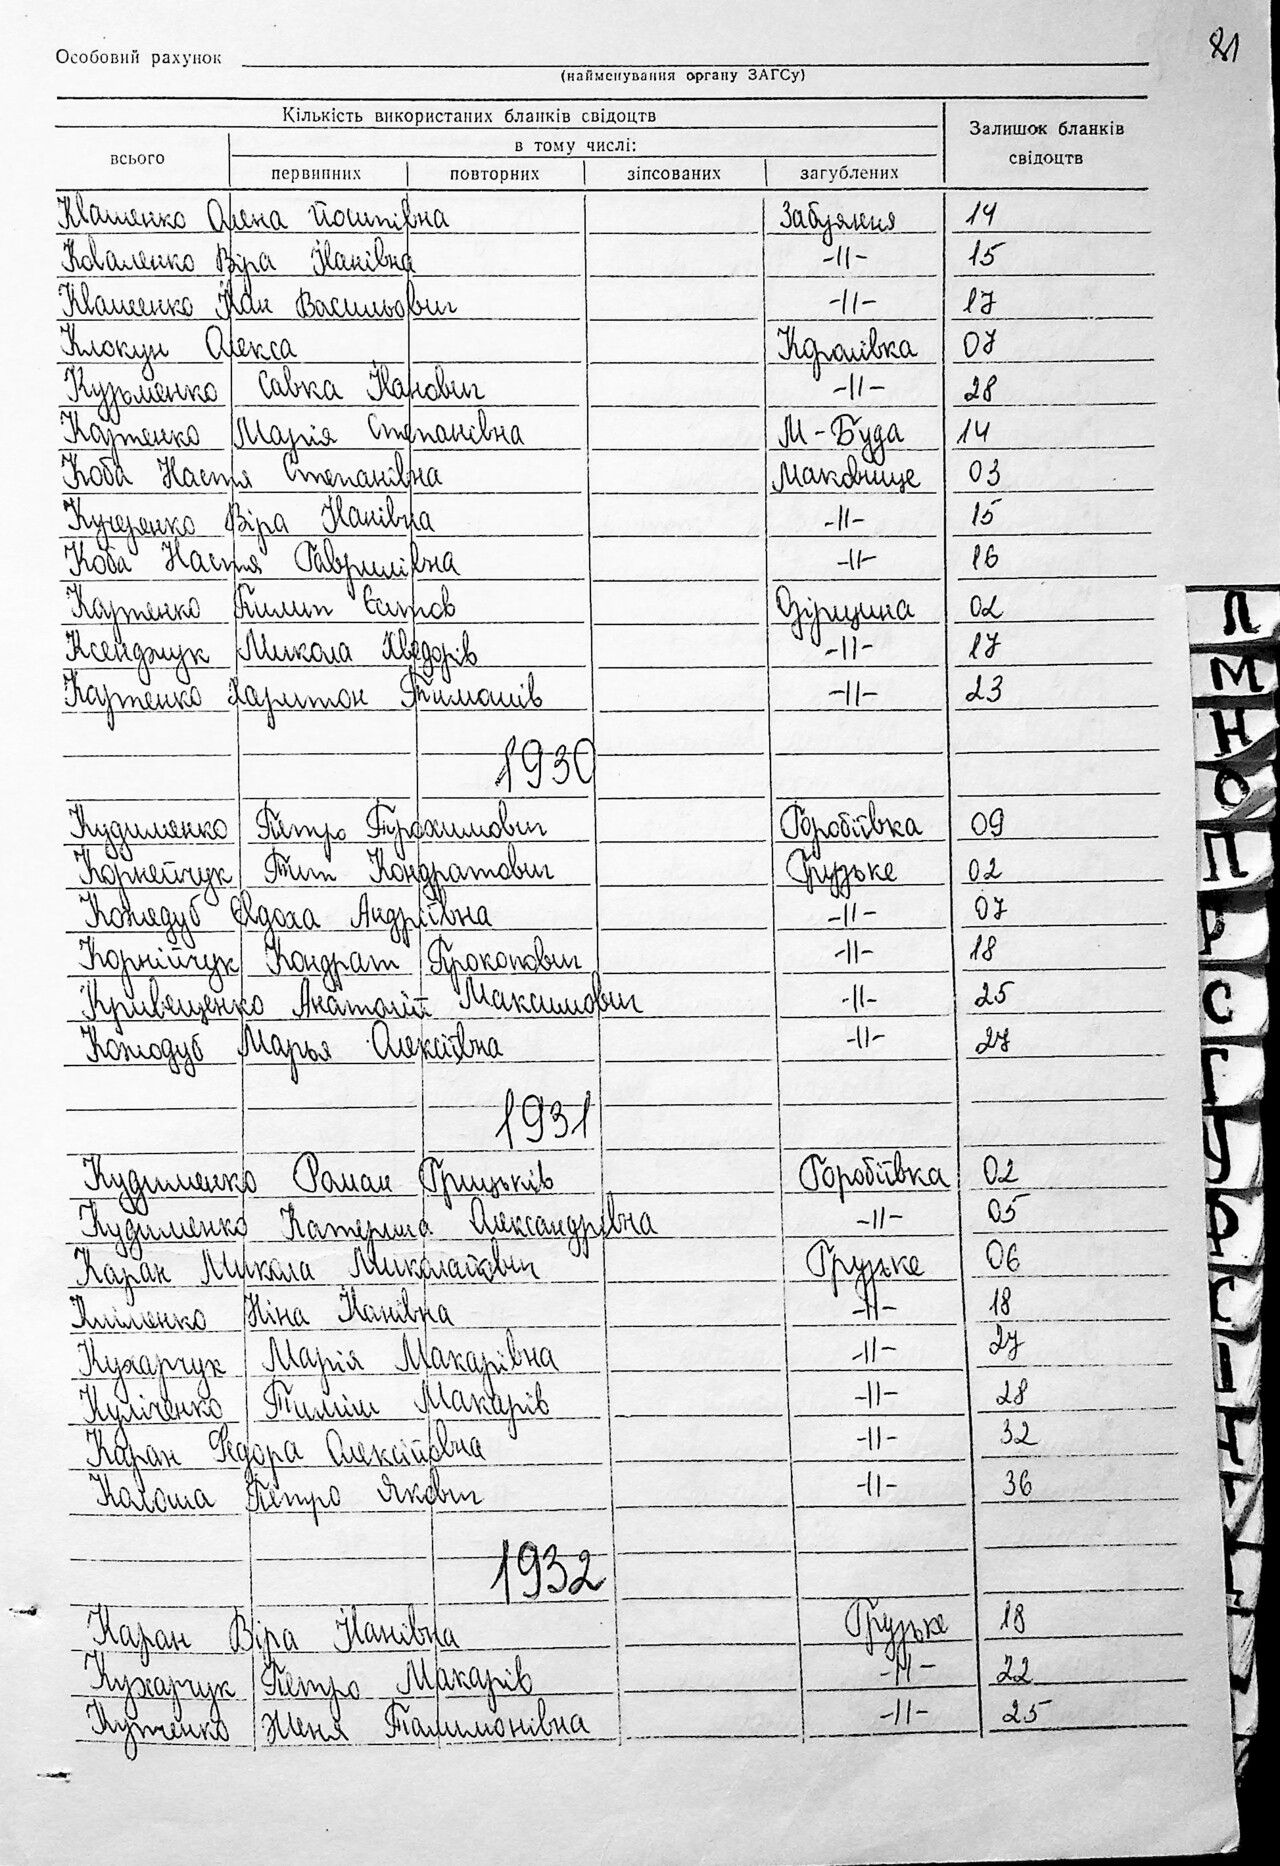 81
Особовий рахунок
(найменування органу ЗАГСу)
Кількість використаних бланків свідоцтв
Залишок бланків свідоцтв
всього
в тому числі:
первинних повторних зіпсованих загублених
Квашенко Олена Йосипівна Забуяння 14
Коваленко Віра Іванівна -//- 15
Квашенко Іван Васильович -//- 17
Клокун Олекса Королівка 07
Кузьменко Савка Іванович -//- 28
Карпенко Марія Степанівна М-Буда 14
Коба Настя Степанівна Маковище 03
Кучеренко Віра Іванівна -//- 15
Коба Настя Гаврилівна -//- 16
Карпенко Пилип Єсипов 02
Ксенджук Микола Хведорів -//- 17
Карпенко Харитон Тимошів -//- 23
1930
Кудименко Петро Трохимович Горобіївка 09
Корнейчук Тит Кондратович Грузьке 02
Кожедуб Евдоха Андріївна -//- 07
Корнійчук Кондрат Прокопович -//- 18
Кривещенко Анатолій Максимович -//- 25
Кожодуб Марья Олексіївна -//- 27
1931
Кудименко Роман Грицьків Горобіївка 02
Кудименко Катерина Олександрівна -//- 05
Каран Микола Миколайович Грузьке 06
Кліменко Ніна Іванівна -//- 18
Кухарчук Марія Макарівна -//- 27
Куліченко Макарів -//- 28
Каран Федора Олексійовна -//- 32
Колоша Петро Якович -//- 36
1932
Каран Віра Іванівна Грузьке 18
Кухарчук Петро Макарів -//- 22
Женя -//- 25
Л
М
Н
О
П
Р
С